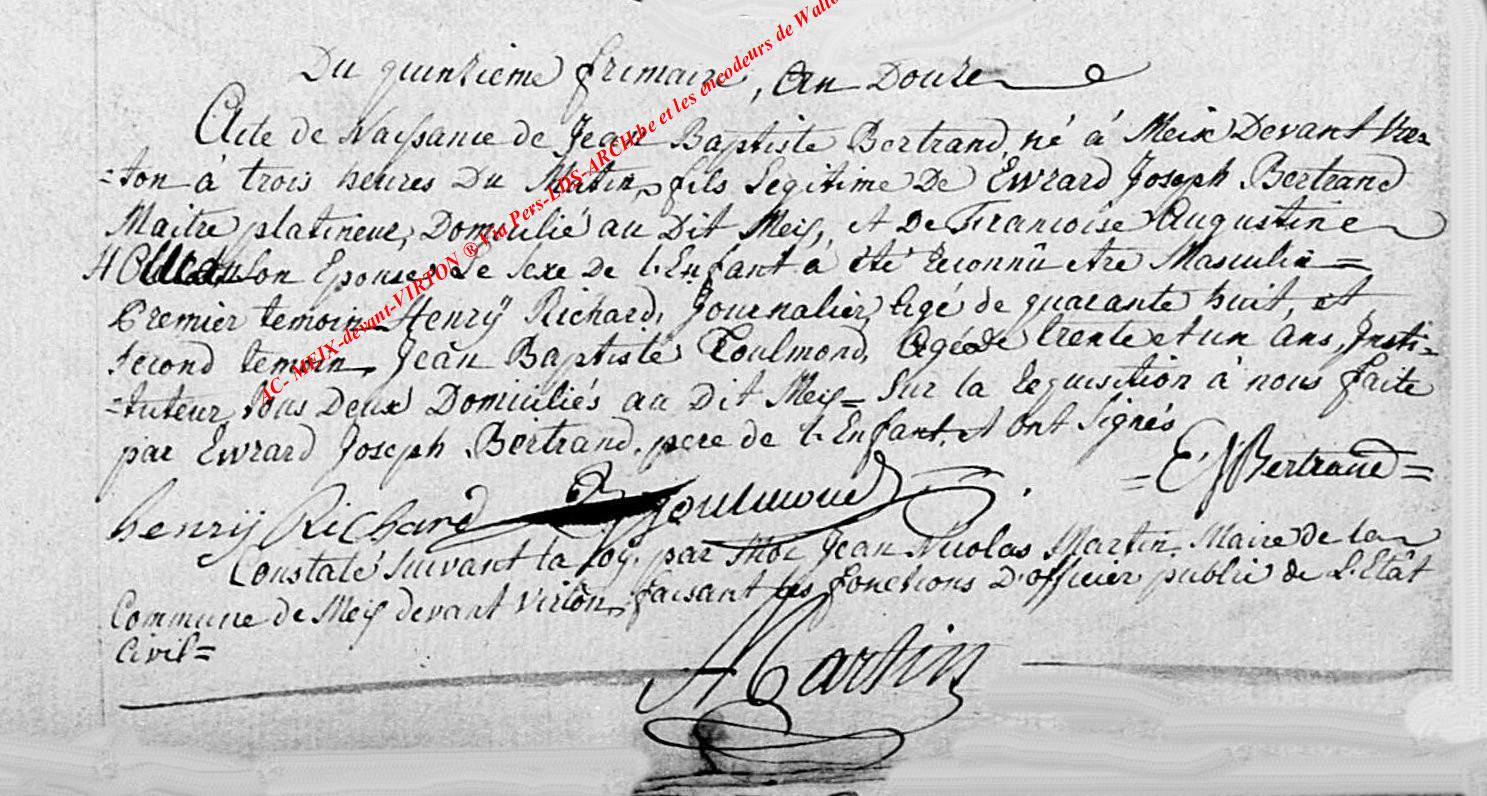 Du quinzieme frimaire, An Douze
Acte de Naissance de Jean Baptiste Bertrand né à Meix Devant Vir-
=ton à trois heures Du Matin, fils Legitime De Ewrard Joseph Bertrand
Maitre platineur, Domicilié au Dit Meix, et De Francoise Augustine
son Epouse Le sexe de l'Enfant a été reconnû etre Masculin=
Premier temoin Henrÿ Richard, Journalier, agé de quarante huit, et
second temoin, Jean Baptiste Goulmond, Agé de trente et un ans, Insti-
=tuteur, tous Deux Domiciliés au Dit Meix= Sur la requisition à nous faite
par Ewrard Joseph Bertrand, pere de l'Enfant, et ont signés
=EJBertrand=
henrÿ Richard Goulmond
Constaté suivant la loÿ, par Moi Jean Nicolas Martin, Maire de la
Commune de Meix devant Virton, faisant les fonctions D'officier public de L'Etât
Civil=
Martin
AC- MEIX-devant-VIRTON ® Via Pers-LDS-ARCH.be et les encodeurs de Wallo